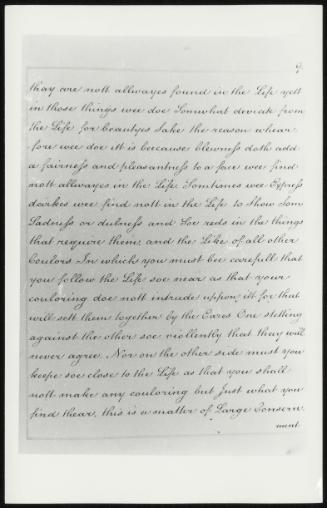 9.
thay are nott allwayes found in the Life yett
in those things wee doe Somwhat deviate from
the Life for beautyes Sake the reason whear
fore wee doe itt is beecause blewness doth add
a fairness and pleasantness to a face wee find
nott allwayes in the Life. Somtimes wee Express
darkes wee find nott in the Life to Show Som
Sadness or dulness and Soe reds in the things
that require them, and the Like of all other
Coulors In which you must bee carefull that
you follow the Life soe near as that your
coulloring doe nott intrude uppon itt for that
will sett them together by the Eares One stelling
against the other soe viollently that they will
never agree. Nor on the other side must you
keepe soe close to the Life as that you shall
nott make any coulloring but Just what you
find thear, this is a matter of Large Consern
ment